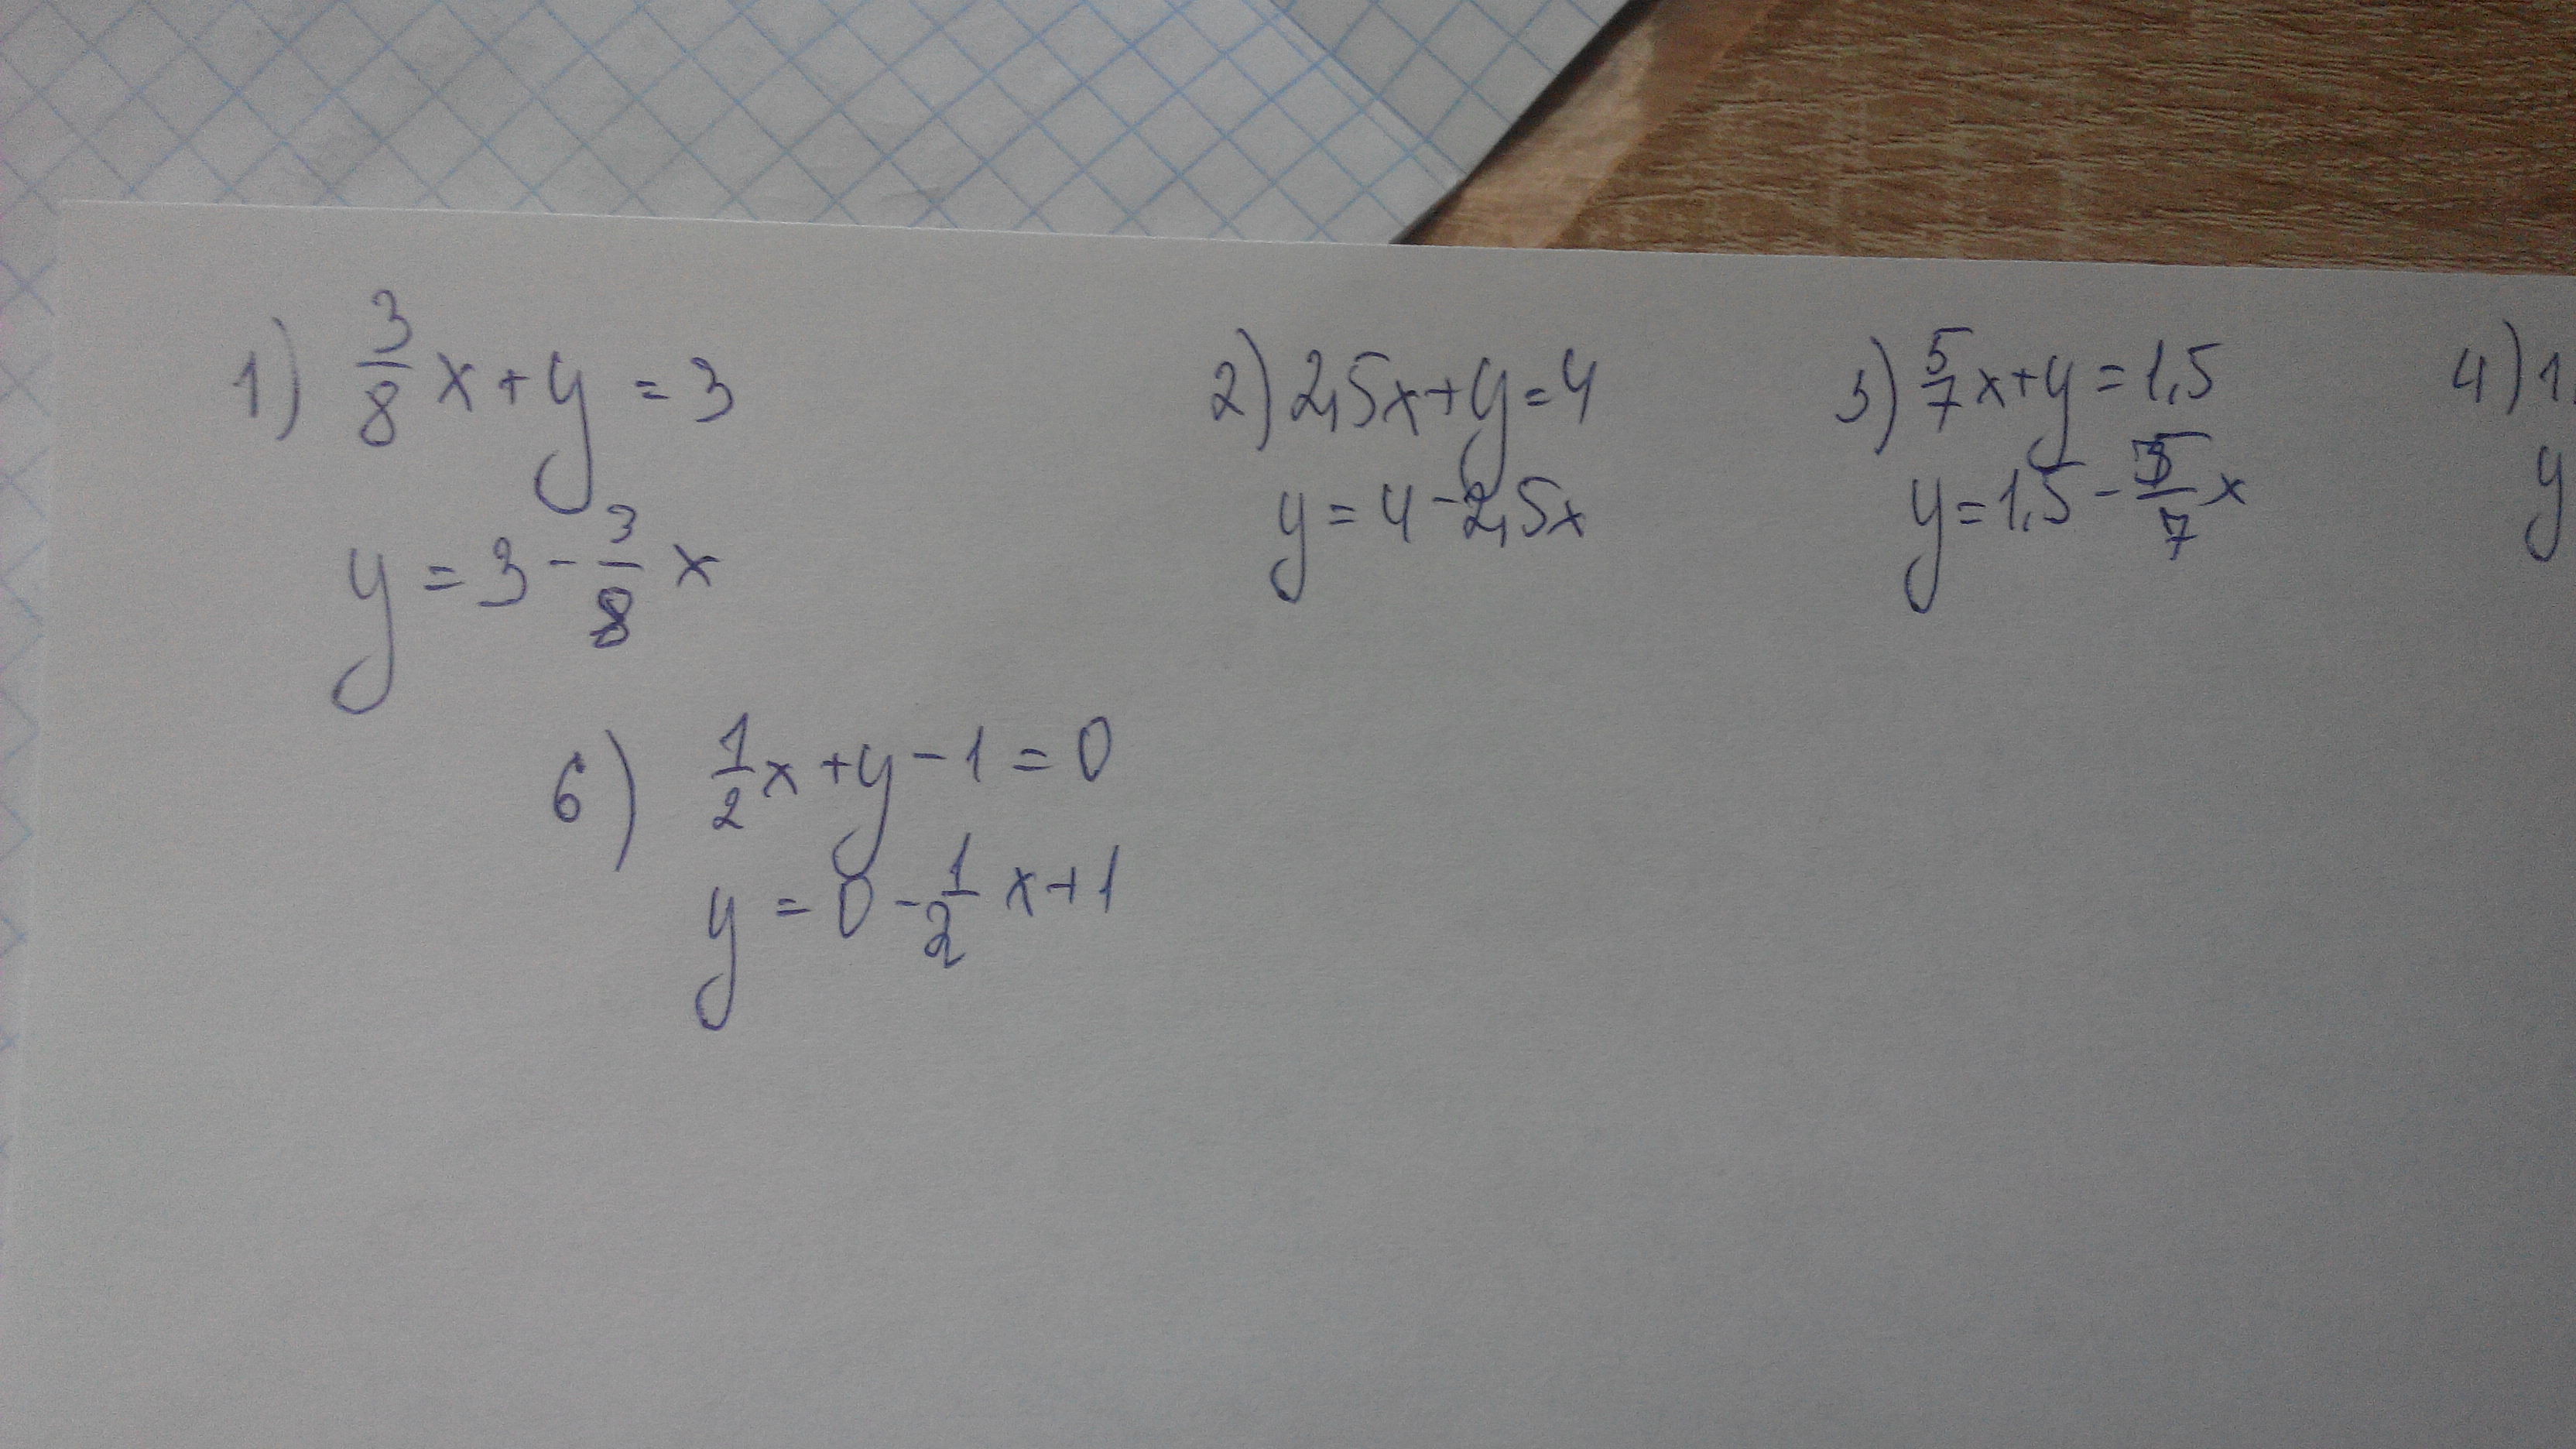 1) 3/8 x + y = 3
y = 3 - 3/8 x
2) 2,5x + y = 4
y = 4 - 2,5x
3) 5/7 x + y = 1,5
y = 1,5 - 5/7 x
4) 1,
y
6) 1/2 x + y - 1 = 0
y = 0 - 1/2 x + 1